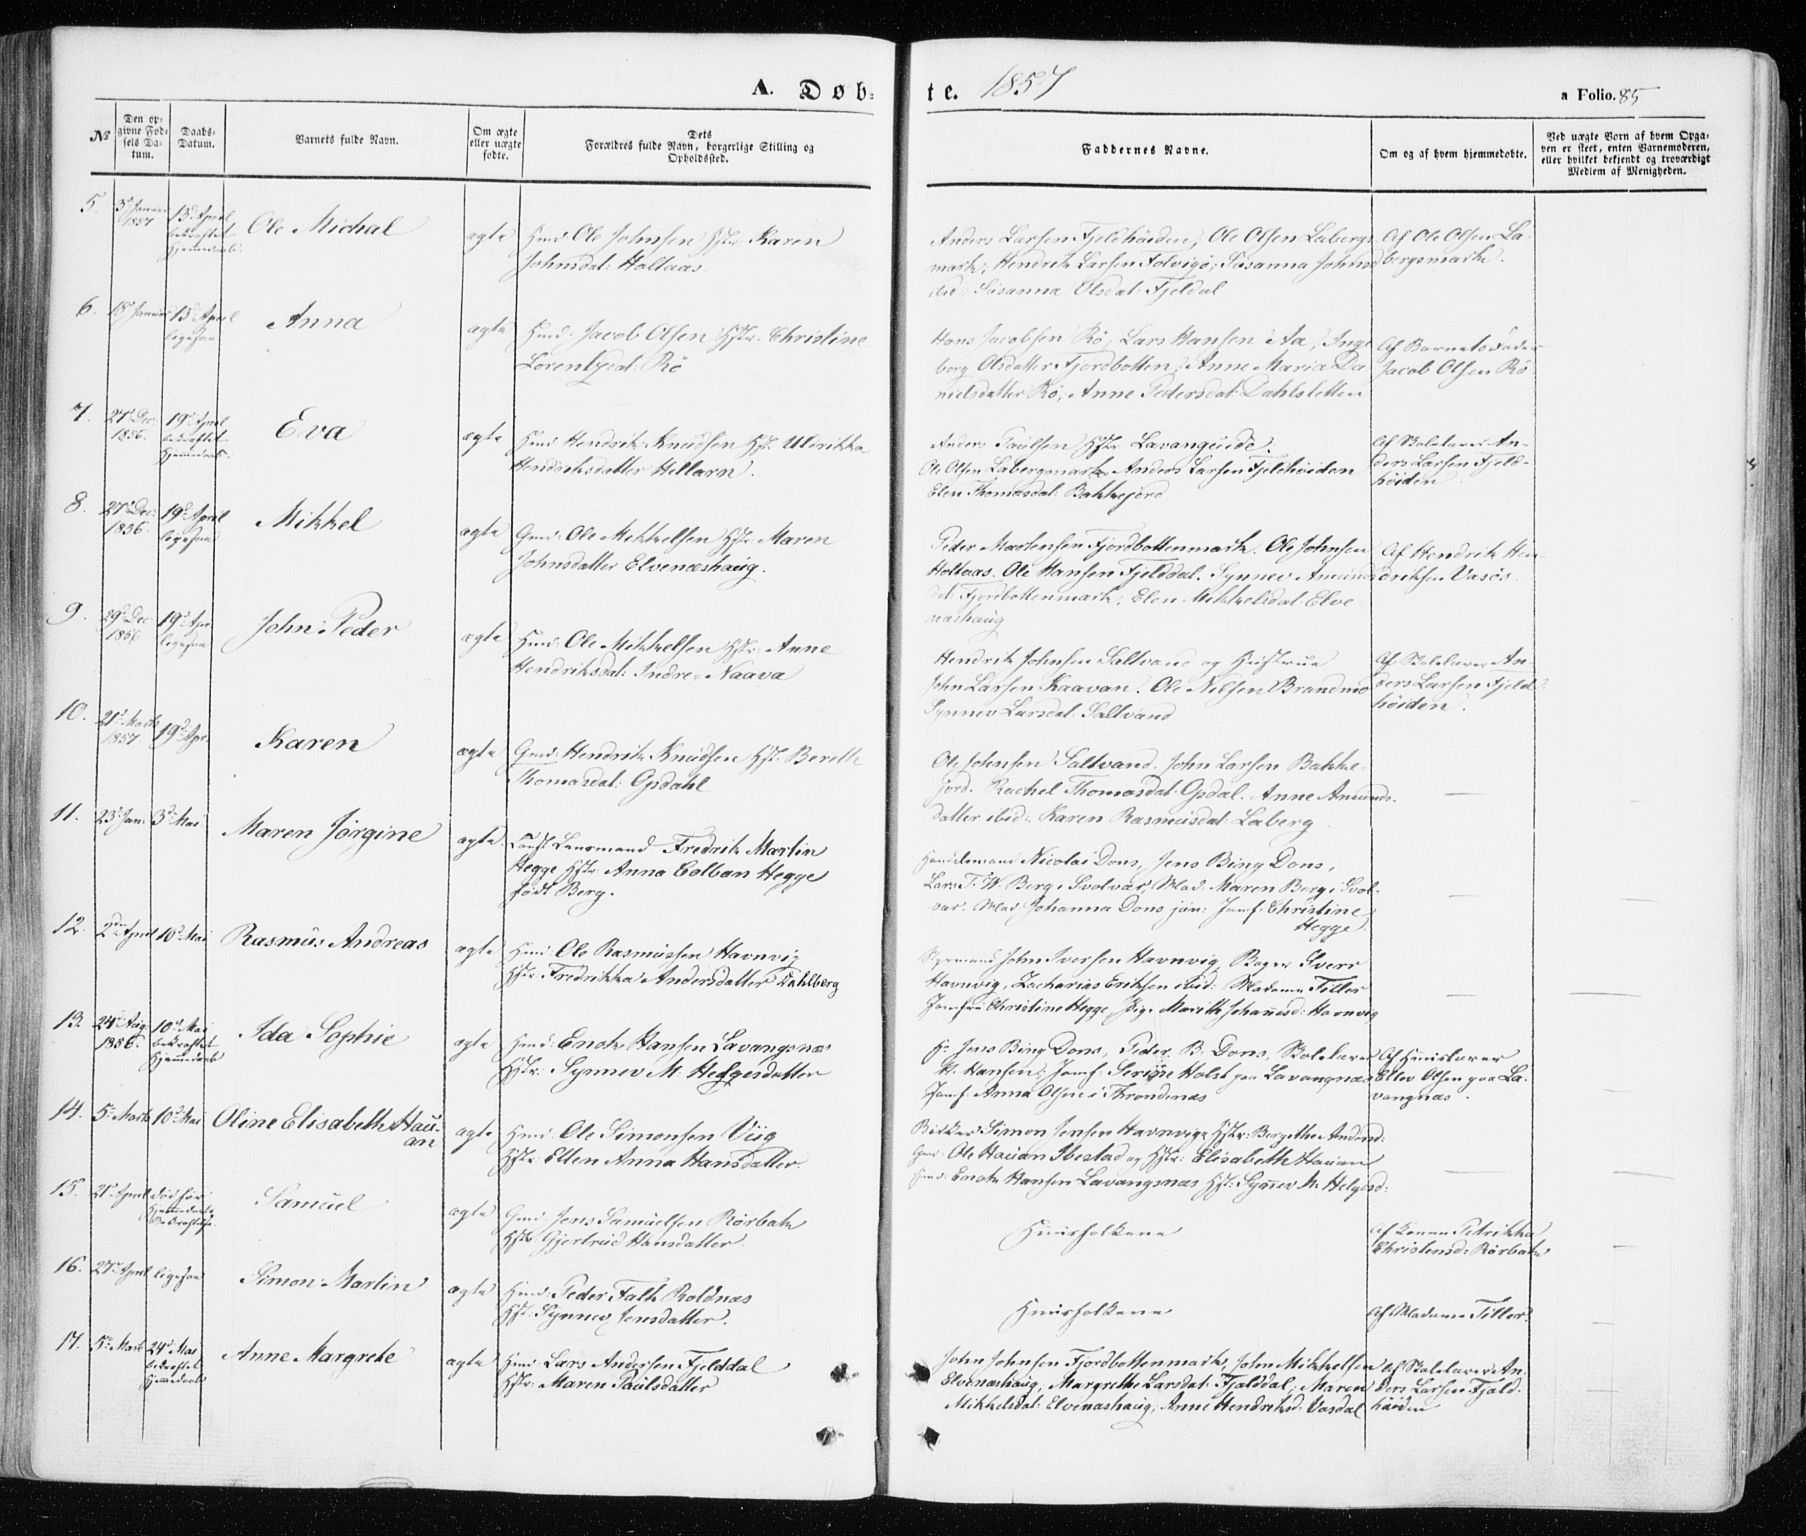 A. Døb-te. 1857
a Folio. 85
№
Den op-
givne Fød-
sels Da-
tum.
Daabs-
Datum.
Barnets fulde Navn.
Om ægte
eller uægte
fødte.
Dets
Forældres fulde Navn, borgerlige Stilling og
Opholdssted.
Faddernes Navne.
Om og af hvem hjemmedøbte.
Ved uægte Børn af hvem Opga-
ven er skeet, enten Barnemoderen,
eller hvilket bekjendt og troværdigt
Medlem af Menigheden.
5
3d Januar
1857
13d April
bekræftet
Hjemmedaab
Ole Michal
ægte
Hmd: Ole Johnsen Hstr. Karen
Johnsdat: Holtaas
Anders Larsen Fjeldhøiden, Ole Olsen Labergs
mark; Hendrik Larsen Folvigø; Susanna Johnsd
Susanna Olsdat: Fjeldal
Af Ole Olsen La-
bergsmark.
6.
18d Januar
13d April
ligesaa
Anna
ægte
Hmd: Jacob Olsen Hstr. Christine
Lorentsdat: Rø
Hans Jacobsen Rø, Lars Hansen Aa, Inge
borg Olsdatter Fjordbotten, Anne Maria Da
nielsdatter Rø, Anne Pedersdat: Dahlsletten
Af Barnets Fader
Jacob Olsen Rø
7.
27d Dec.
1856.
19d April
bekræftet
Hjemmedaab.
Eva
ægte
Hmd: Hendrik Knudsen Hst. Ulrikka
Hendriksdatter Hellarn.
Anders Paulsen Hstr Lavangeide.
Ole Olsen Labergsmark Anders Larsen Fjeldhøiden
Elen Thomasdat: Bakkejord
Af Skolelærer An-
ders Larsen Fjeld-
høiden.
8.
27d Dec:
1856.
19d April
ligesaa
Mikkel
ægte
Gmd: Ole Mikkelsen Hstr. Maren
Johnsdatter Elvenæshaug.
Peder Mortensen Fjordbottenmark. Ole Johnsen
Holtaas. Ole Hansen Fjelddal. Synnev Amunds
dat: Fjordbottenmark; Elen Mikkelsdat: Elve
næshaug
Af Hendrik Hen-
driksen Vasøs.
9.
29d Dec
1856
19d Apr
ligesaa
John Peder
ægte
Hmd: Ole Mikkelsen Hstr. Anne
Hendriksdat: Indre-Naava
Hendrik Johnsen Saltvand og Hustrue
John Larsen Kaavan. Ole Nilsen Brandmo
Synnev Larsdat: Saltvand
Af Skolelærer An-
ders Larsen Fjeld
høiden.
10.
21d Marts
1857
19d Apr.
Karen
ægte
Gmd: Hendrik Knudsen Hst. Bereth
Thomasdat: Opsdahl
Ole Johnsen Saltvand. John Larsen Bakke-
jord. Rachel Thomasdat. Opsdal. Anne Amunds-
datter ibid: Karen Rasmusdat: Laberg
11.
23d Jan.
3d Mai
Maren Jørgine
ægte
Const Lensmand Fredrik Martin
Hegge Hstr. Anna Colban Hegge
født Berg.
Handelsmand Nicolai Dons, Jens Bing Dons,
Lars T. W. Berg i Svolvær, Mad. Maren Berg i Svol-
vær. Mad Johanna Dons jun: Jomf. Christine
Hegge
12.
2den April
10d Mai
Rasmus Andreas
ægte
Hmd: Ole Rasmussen Havnvig
Hstr: Fredrikka Andersdatter Dahlberg
Styrmand John Iversen Havnvig, Bager Sverr
Havnvig, Zacharias Eriksen ibid: Madame Tiller
Jomfru Christine Hegge, Pige Marith Johannesd: Havnvig
13.
24d Aug
1856.
10d Mai
bekræftet
Hjemmedaab
Ida Sophie
ægte
Hmd: Enok Hansen Lavangsnæs
Hstr. Synnev M. Helgesdatter
Hr Jens Bing Dons, Peder B. Dons, Skolelærer
W. Hansen; Jomf. Serine Holst paa Lavangnæs
Jomf. Anna Olsen i Throndenæs
Af Huuslærer
Ellev Olsen paa La-
vangnæs.
14.
5te Marts
10d Mai
Oline Elisabeth Hau-
an
ægte
Hmd: Ole Simonsen Viig
Hstr: Ellen Anna Hansdatter.
Bødker Simon Jensen Havnvig Hstr: Bergithe Andersd:
Gmd: Ole Hauan Ibestad og Hstr: Elisabeth Hauan
Hmd: Enok Hansen Lavangsnæs Hst: Synnev M. Helgesd:
15.
21d April
død før
Hjemmedaabs
Bekræftelse.
Samuel
ægte
Gmd. Jens Samuelsen Rørbak
Hstr. Gjertrud Hansdatter
Huusfolkene
Af Konen Petrikka
Christensd: Rørbak
16.
27d April
ligesaa
Simon Martin
ægte
Hmd: Peder Falk Roldnæs
Hst. Synnev Jensdatter.
Huusfolkene
Af Madame Tiller.
17.
5te Marts
24d Mai
bekræftet
Hjemmedaab
Anne Margrete
ægte
Hmd: Lars Andersen Fjelddal
Hstr. Maren Paulsdatter
John Johnsen Fjordbottenmark, John Mikkelsen
Elvenæshaug, Margrethe Larsdat: Fjelddal, Maren
Mikkelsdat: Elvenæshaug; Anne Hendriksd: Vasdal
Af Skolelærer An-
ders Larsen Fjeld-
høiden